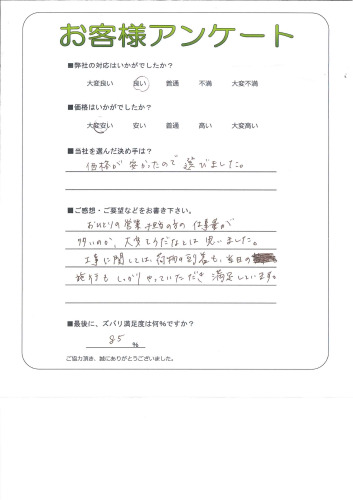 お客様アンケート
■弊社の対応はいかがでしたか？
大変良い 良い 普通 不満 大変不満
■価格はいかがでしたか？
大変安い 安い 普通 高い 大変高い
■当社を選んだ決め手は？
価格が安かったので選びました。
■ご感想・ご要望などをお書き下さい。
おひとりの営業担当の方の仕事量が
多いのか、大変そうだなとは思いました。
工事に関しては、荷物の到着も、当日の
施行もしっかりやっていただき満足しています。
■最後に、ズバリ満足度は何%ですか？
85 %
ご協力頂き、誠にありがとうございました。